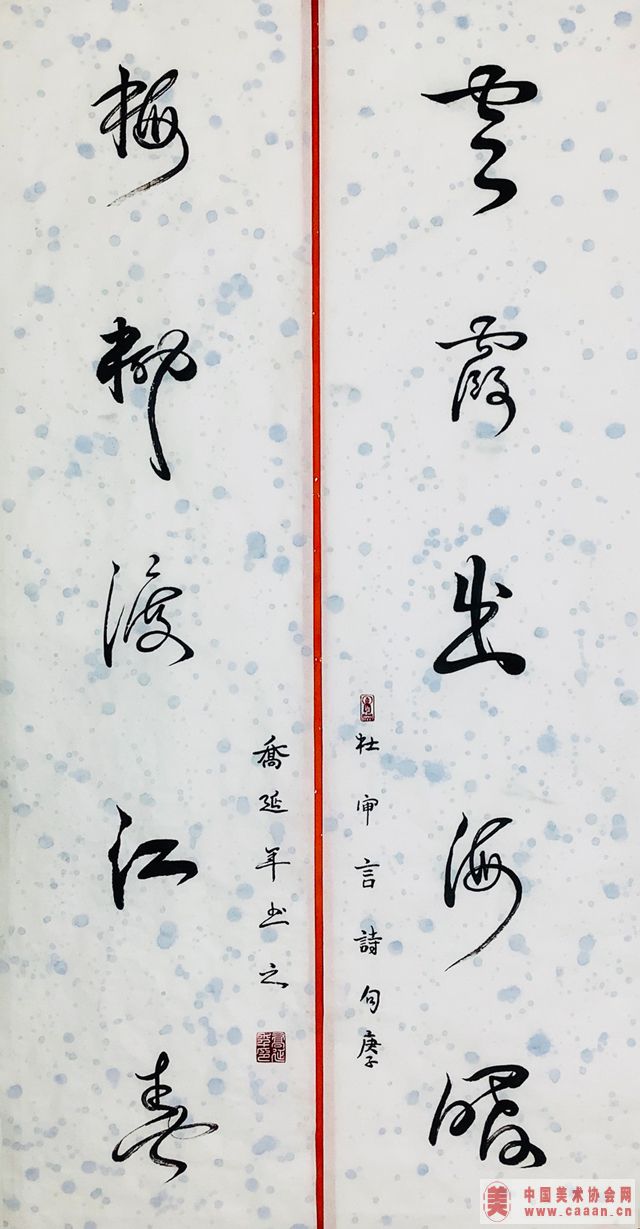 云霞出海曙
杜审言詩句庚子
梅柳渡江春
喬延年书之
喬延年印
美 中国美术协会网
www.caaan.cn